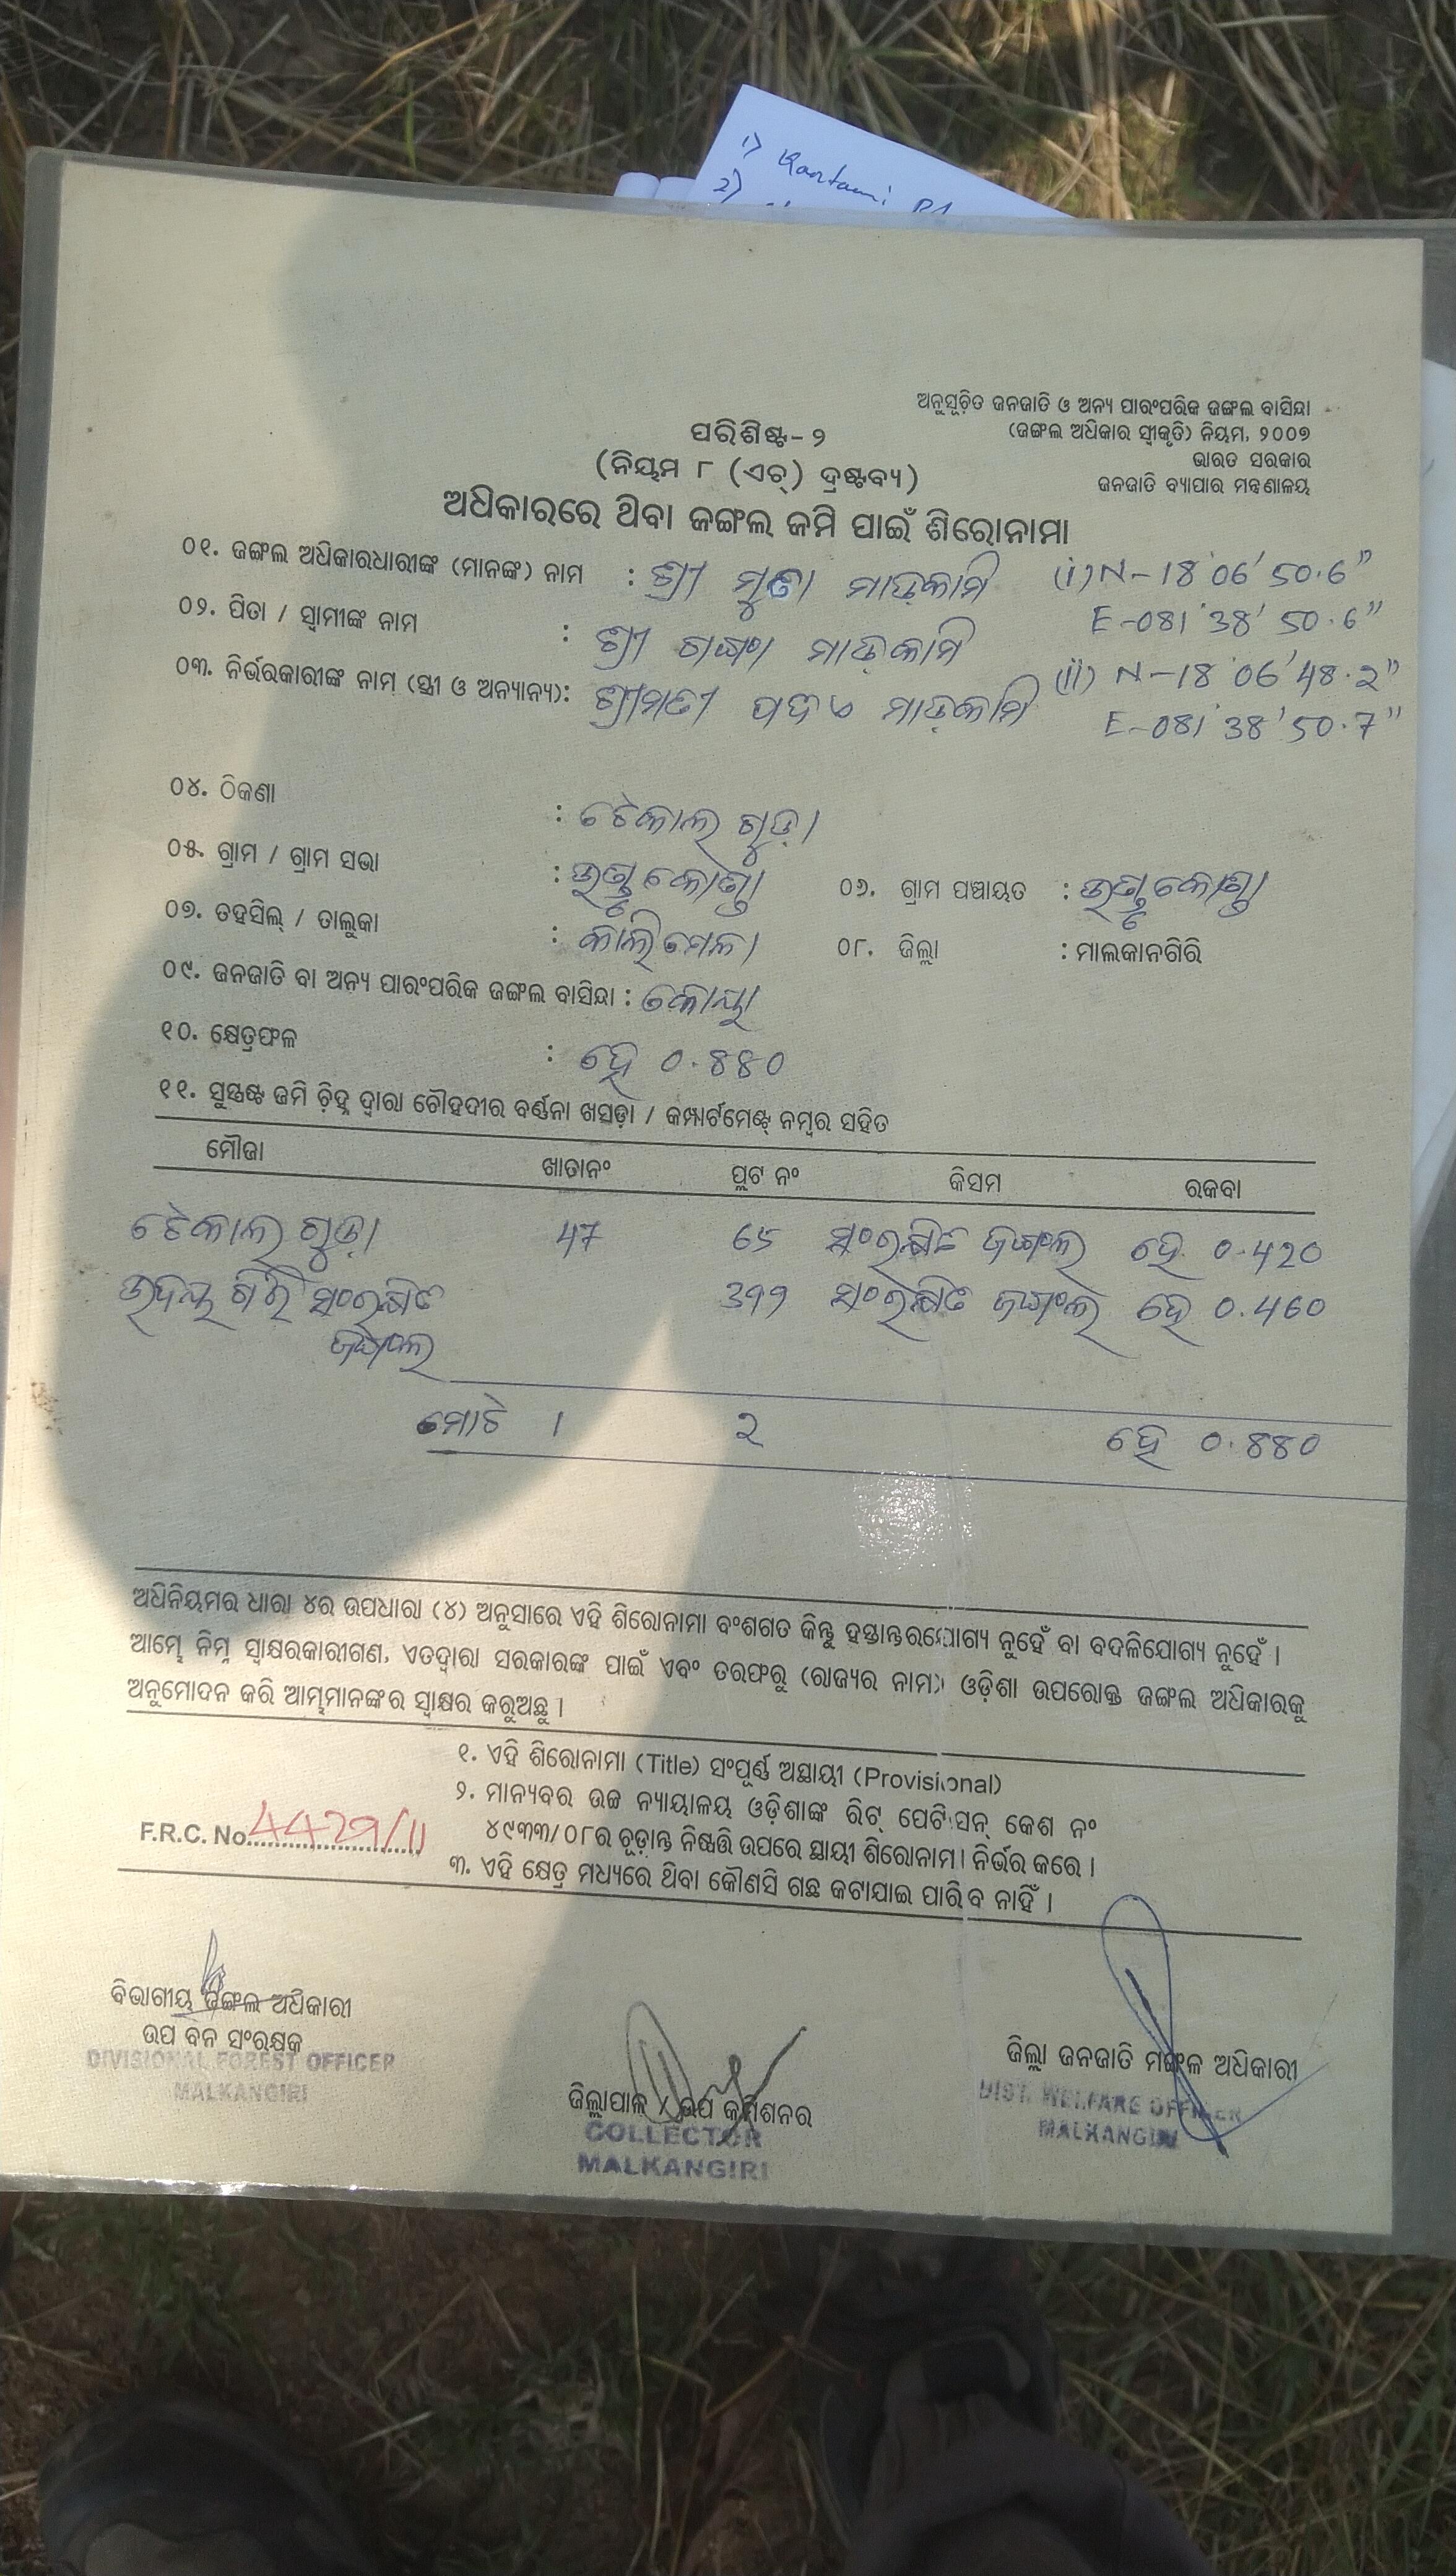 1) Kartami
2)
ଅନୁସୂଚିତ ଜନଜାତି ଓ ଅନ୍ୟ ପାରଂପରିକ ଜଙ୍ଗଲ ବାସିନ୍ଦା
(ଜଙ୍ଗଲ ଅଧିକାର ସ୍ୱୀକୃତି) ନିୟମ, ୨୦୦୭
ଭାରତ ସରକାର
ଜନଜାତି ବ୍ୟାପାର ମନ୍ତ୍ରଣାଳୟ
ପରିଶିଷ୍ଟ-୨
(ନିୟମ ୮ (ଏଚ୍) ଦ୍ରଷ୍ଟବ୍ୟ)
ଅଧିକାରରେ ଥିବା ଜଙ୍ଗଲ ଜମି ପାଇଁ ଶିରୋନାମା
୦୧. ଜଙ୍ଗଲ ଅଧିକାରଧାରୀଙ୍କ (ମାନଙ୍କ) ନାମ : ଶ୍ରୀ ମୁତା ମାଡ଼କାମି (i) N-18°06'50.6"
E-081°38'50.6"
୦୨. ପିତା / ସ୍ୱାମୀଙ୍କ ନାମ : ଶ୍ରୀ ଗଙ୍ଗା ମାଡ଼କାମି
(ii) N-18°06'48.2"
୦୩. ନିର୍ଭରକାରୀଙ୍କ ନାମ (ସ୍ତ୍ରୀ ଓ ଅନ୍ୟାନ୍ୟ): ଶ୍ରୀମତୀ ମାଡ଼କାମି
E-081°38'50.7"
୦୪. ଠିକଣା : ଟେକାଲ ଗୁଡ଼ା
୦୫. ଗ୍ରାମ / ଗ୍ରାମ ସଭା : ଉସ୍କୁକୋଣ୍ଡା ୦୬. ଗ୍ରାମ ପଞ୍ଚାୟତ : ଉସ୍କୁକୋଣ୍ଡା
୦୭. ତହସିଲ୍ / ତାଲୁକା : କାଲିମେଳା ୦୮. ଜିଲ୍ଲା : ମାଲକାନଗିରି
୦୯. ଜନଜାତି ବା ଅନ୍ୟ ପାରଂପରିକ ଜଙ୍ଗଲ ବାସିନ୍ଦା : କୋୟା
୧୦. କ୍ଷେତ୍ରଫଳ : ହେ ୦.୪୪୦
୧୧. ସୁସ୍ପଷ୍ଟ ଜମି ଚିହ୍ନ ଦ୍ୱାରା ଚୌହଦୀର ବର୍ଣ୍ଣନା ଖସଡ଼ା / କମ୍ପାର୍ଟମେଣ୍ଟ୍ ନମ୍ବର ସହିତ
ମୌଜା ଖାତାନଂ ପ୍ଲଟ ନଂ କିସମ ରକବା
ଟେକାଲ ଗୁଡ଼ା 47 ୬୫ ସଂରକ୍ଷିତ ଜଙ୍ଗଲ ହେ 0.420
ଉଦୟ ଗିରି ସଂରକ୍ଷିତ ସଂରକ୍ଷିତ ଜଙ୍ଗଲ ହେ 0.460
ଜଙ୍ଗଲ
ମୋଟ 1 ୨ ହେ ୦.୪୪୦
ଅଧିନିୟମର ଧାରା ୪ର ଉପଧାରା (୪) ଅନୁସାରେ ଏହି ଶିରୋନାମା ବଂଶଗତ କିନ୍ତୁ ହସ୍ତାନ୍ତରଯୋଗ୍ୟ ନୁହେଁ ବା ବଦଳିଯୋଗ୍ୟ ନୁହେଁ ।
ଆମ୍ଭେ ନିମ୍ନ ସ୍ୱାକ୍ଷରକାରୀଗଣ, ଏତଦ୍ୱାରା ସରକାରଙ୍କ ପାଇଁ ଏବଂ ତରଫରୁ (ରାଜ୍ୟର ନାମ) ଓଡ଼ିଶା ଉପରୋକ୍ତ ଜଙ୍ଗଲ ଅଧିକାରକୁ
ଅନୁମୋଦନ କରି ଆମ୍ଭମାନଙ୍କର ସ୍ୱାକ୍ଷର କରୁଅଛୁ ।
୧. ଏହି ଶିରୋନାମା (Title) ସଂପୂର୍ଣ୍ଣ ଅସ୍ଥାୟୀ (Provisional)
୨. ମାନ୍ୟବର ଉଚ୍ଚ ନ୍ୟାୟାଳୟ ଓଡ଼ିଶାଙ୍କ ରିଟ୍ ପେଟିସନ୍ କେଶ ନଂ
୪୯୩୩/୦୮ର ଚୂଡ଼ାନ୍ତ ନିଷ୍ପତ୍ତି ଉପରେ ସ୍ଥାୟୀ ଶିରୋନାମା ନିର୍ଭର କରେ ।
F.R.C. No.
୩. ଏହି କ୍ଷେତ୍ର ମଧ୍ୟରେ ଥିବା କୌଣସି ଗଛ କଟାଯାଇ ପାରିବ ନାହିଁ ।
ବିଭାଗୀୟ ଜଙ୍ଗଲ ଅଧିକାରୀ
ଉପ ବନ ସଂରକ୍ଷକ
DIVISIONAL FOREST OFFICER
MALKANGIRI
ଜିଲ୍ଲାପାଳ / ଉପ କମିଶନର
COLLECTOR
MALKANGIRI
ଜିଲ୍ଲା ଜନଜାତି ମଙ୍ଗଳ ଅଧିକାରୀ
DIST. WELFARE OFFICER
MALKANGIRI